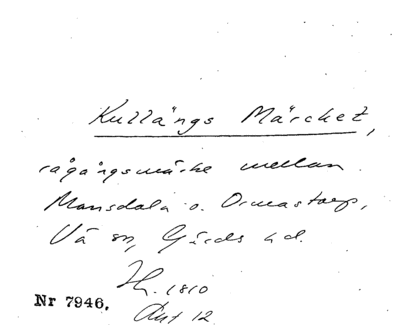 Kullängs Märchet,
rågångsmärke mellan
Mansdala o. Ormastorp,
Vä sn, Gärds hd.
H. 1810
Akt 12
Nr 7946.